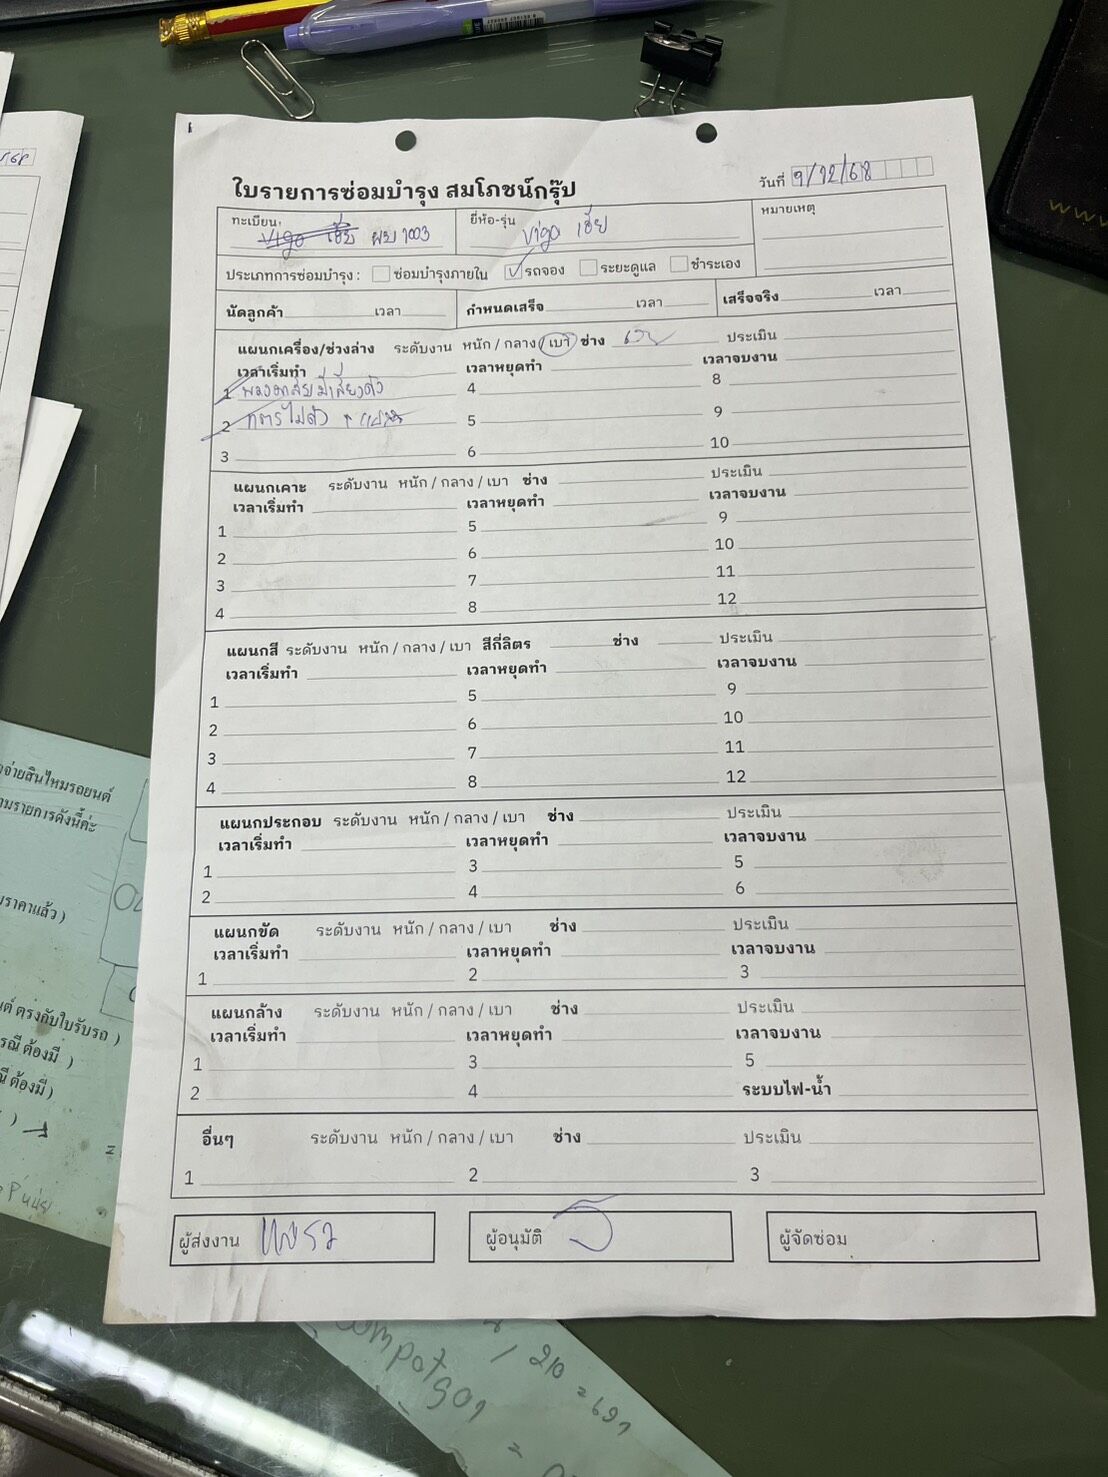 ใบรายการซ่อมบำรุง สมโภชน์กรุ๊ป
วันที่ 9/12/68
ทะเบียน ผบ 1003
ยี่ห้อ-รุ่น Vigo
หมายเหตุ
ประเภทการซ่อมบำรุง : ซ่อมบำรุงภายใน รถจอง ระยะดูแล ชำระเอง
นัดลูกค้า เวลา กำหนดเสร็จ เวลา เสร็จจริง เวลา
แผนกเครื่อง/ช่วงล่าง ระดับงาน หนัก / กลาง / เบา ช่าง ประเมิน
เวลาเริ่มทำ เวลาหยุดทำ เวลาจบงาน
1 มีเสียงดัง 4 8
2 5 9
3 6 10
แผนกเคาะ ระดับงาน หนัก / กลาง / เบา ช่าง ประเมิน
เวลาเริ่มทำ เวลาหยุดทำ เวลาจบงาน
1 5 9
2 6 10
3 7 11
4 8 12
แผนกสี ระดับงาน หนัก / กลาง / เบา สีกี่ลิตร ช่าง ประเมิน
เวลาเริ่มทำ เวลาหยุดทำ เวลาจบงาน
1 5 9
2 6 10
3 7 11
4 8 12
แผนกประกอบ ระดับงาน หนัก / กลาง / เบา ช่าง ประเมิน
เวลาเริ่มทำ เวลาหยุดทำ เวลาจบงาน
1 3 5
2 4 6
แผนกขัด ระดับงาน หนัก / กลาง / เบา ช่าง ประเมิน
เวลาเริ่มทำ เวลาหยุดทำ เวลาจบงาน
1 2 3
แผนกล้าง ระดับงาน หนัก / กลาง / เบา ช่าง ประเมิน
เวลาเริ่มทำ เวลาหยุดทำ เวลาจบงาน
1 3 5
2 4 ระบบไฟ-น้ำ
อื่นๆ ระดับงาน หนัก / กลาง / เบา ช่าง ประเมิน
1 2 3
ผู้ส่งงาน
ผู้อนุมัติ
ผู้จัดซ่อม
จ่ายสินไหมรถยนต์
ามรายการดังนี้ค่ะ
บราคาแล้ว )
นต์ ตรงกับใบรับรถ )
รณี ต้องมี )
ณี ต้องมี )
/ 210 = 691